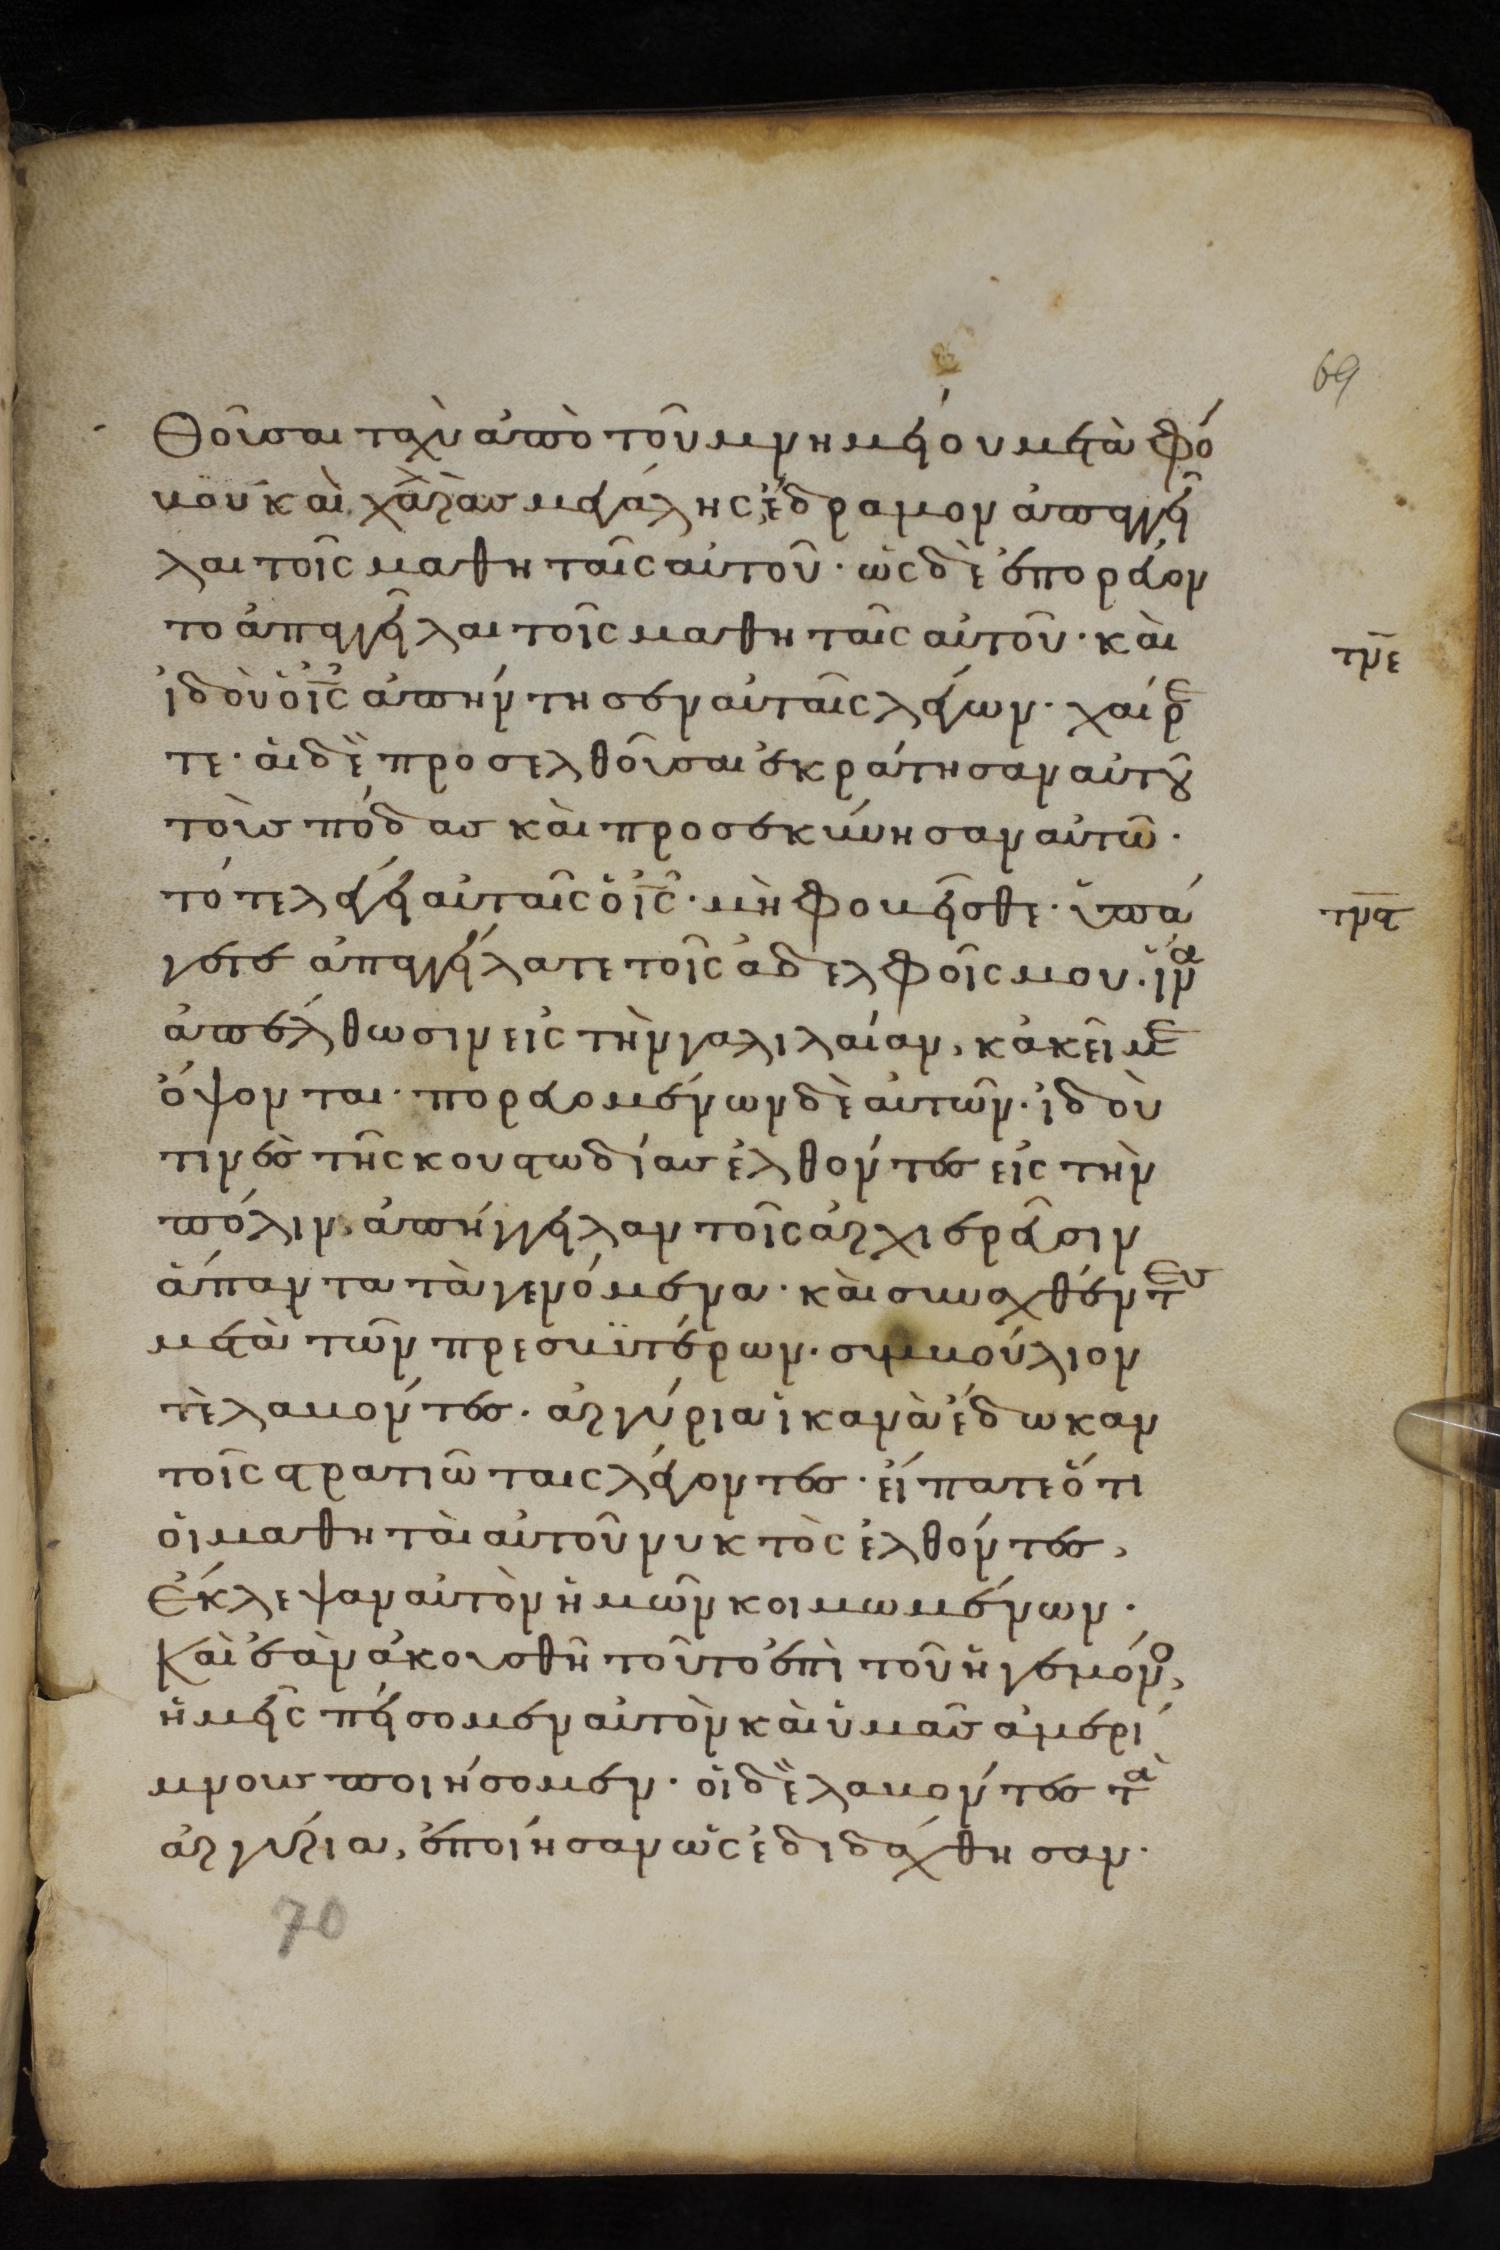 69
θοῦσαι ταχὺ ἀπὸ τοῦ μνημείου μετὰ φό
βου καὶ χαρὰσ μεγάλης ἔδραμον ἀπαγγεῖ
λαι τοῖς μαθηταῖς αὐτοῦ· ὡς δὲ ἐπορεύον
το ἀπαγγεῖλαι τοῖς μαθηταῖς αὐτοῦ· καὶ
τμε
ἰδοὺ ὁ ις ἀπήντησεν αὐταῖς λέγων· χαίρε
τε· αἱ δὲ προσελθοῦσαι ἐκράτησαν αὐτοῦ
τοὺσ πόδασ καὶ προσεκύνησαν αὐτῶ·
τότε λέγει αὐταῖς ὁ ις· μὴ φοβεῖσθε· ὑπά
τμϛ
γετε ἀπαγγείλατε τοῖς ἀδελφοῖς μου· ἵνα
ἀπέλθωσιν εἰς τὴν γαλιλαίαν, κἀκεῖ με
ὄψονται· πορευομένων δὲ αὐτῶν· ἰδοὺ
τινὲσ τῆς κουστωδίασ ἐλθόντεσ εἰς τὴν
πόλιν, ἀπήγγειλαν τοῖς ἀρχιερεῦσιν
ἅπαντα τὰ γενόμενα· καὶ συναχθέντεσ
μετὰ τῶν πρεσβϋτέρων· συμβούλιον
τὲ λαβόντεσ· ἀργύρια ἱκανὰ ἔδωκαν
τοῖς στρατιώταις λέγοντεσ· εἴπατε ὅτι
οἱ μαθηταὶ αὐτοῦ νυκτὸς ἐλθόντεσ,
ἔκλεψαν αὐτὸν ἡμῶν κοιμωμένων·
Καὶ ἐὰν ἀκουσθῆ τοῦτο ἐπὶ τοῦ ἡγεμόνο,
ἡμεῖς πείσομεν αὐτὸν καὶ ὑμᾶσ ἀμερί
μνουσ ποιήσομεν· οἱ δὲ λαβόντεσ τὰ
ἀργύρια, ἐποίησαν ὡς ἐδιδάχθησαν·
70